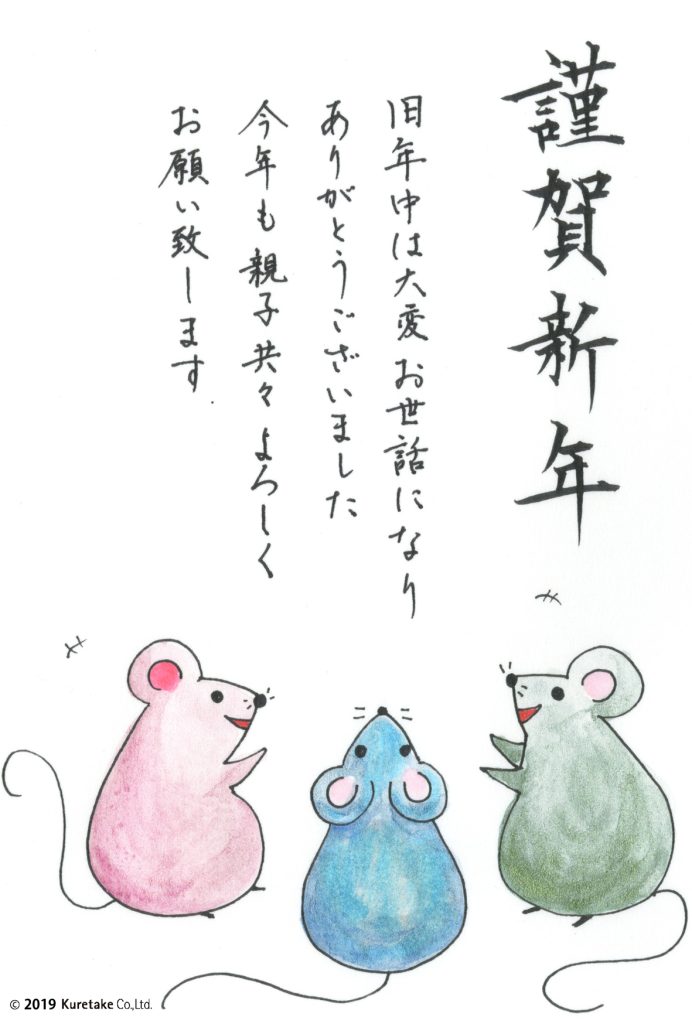 謹賀新年
旧年中は大変お世話になり
ありがとうございました
今年も親子共々よろしく
お願い致します
© 2019 Kuretake Co.,Ltd.